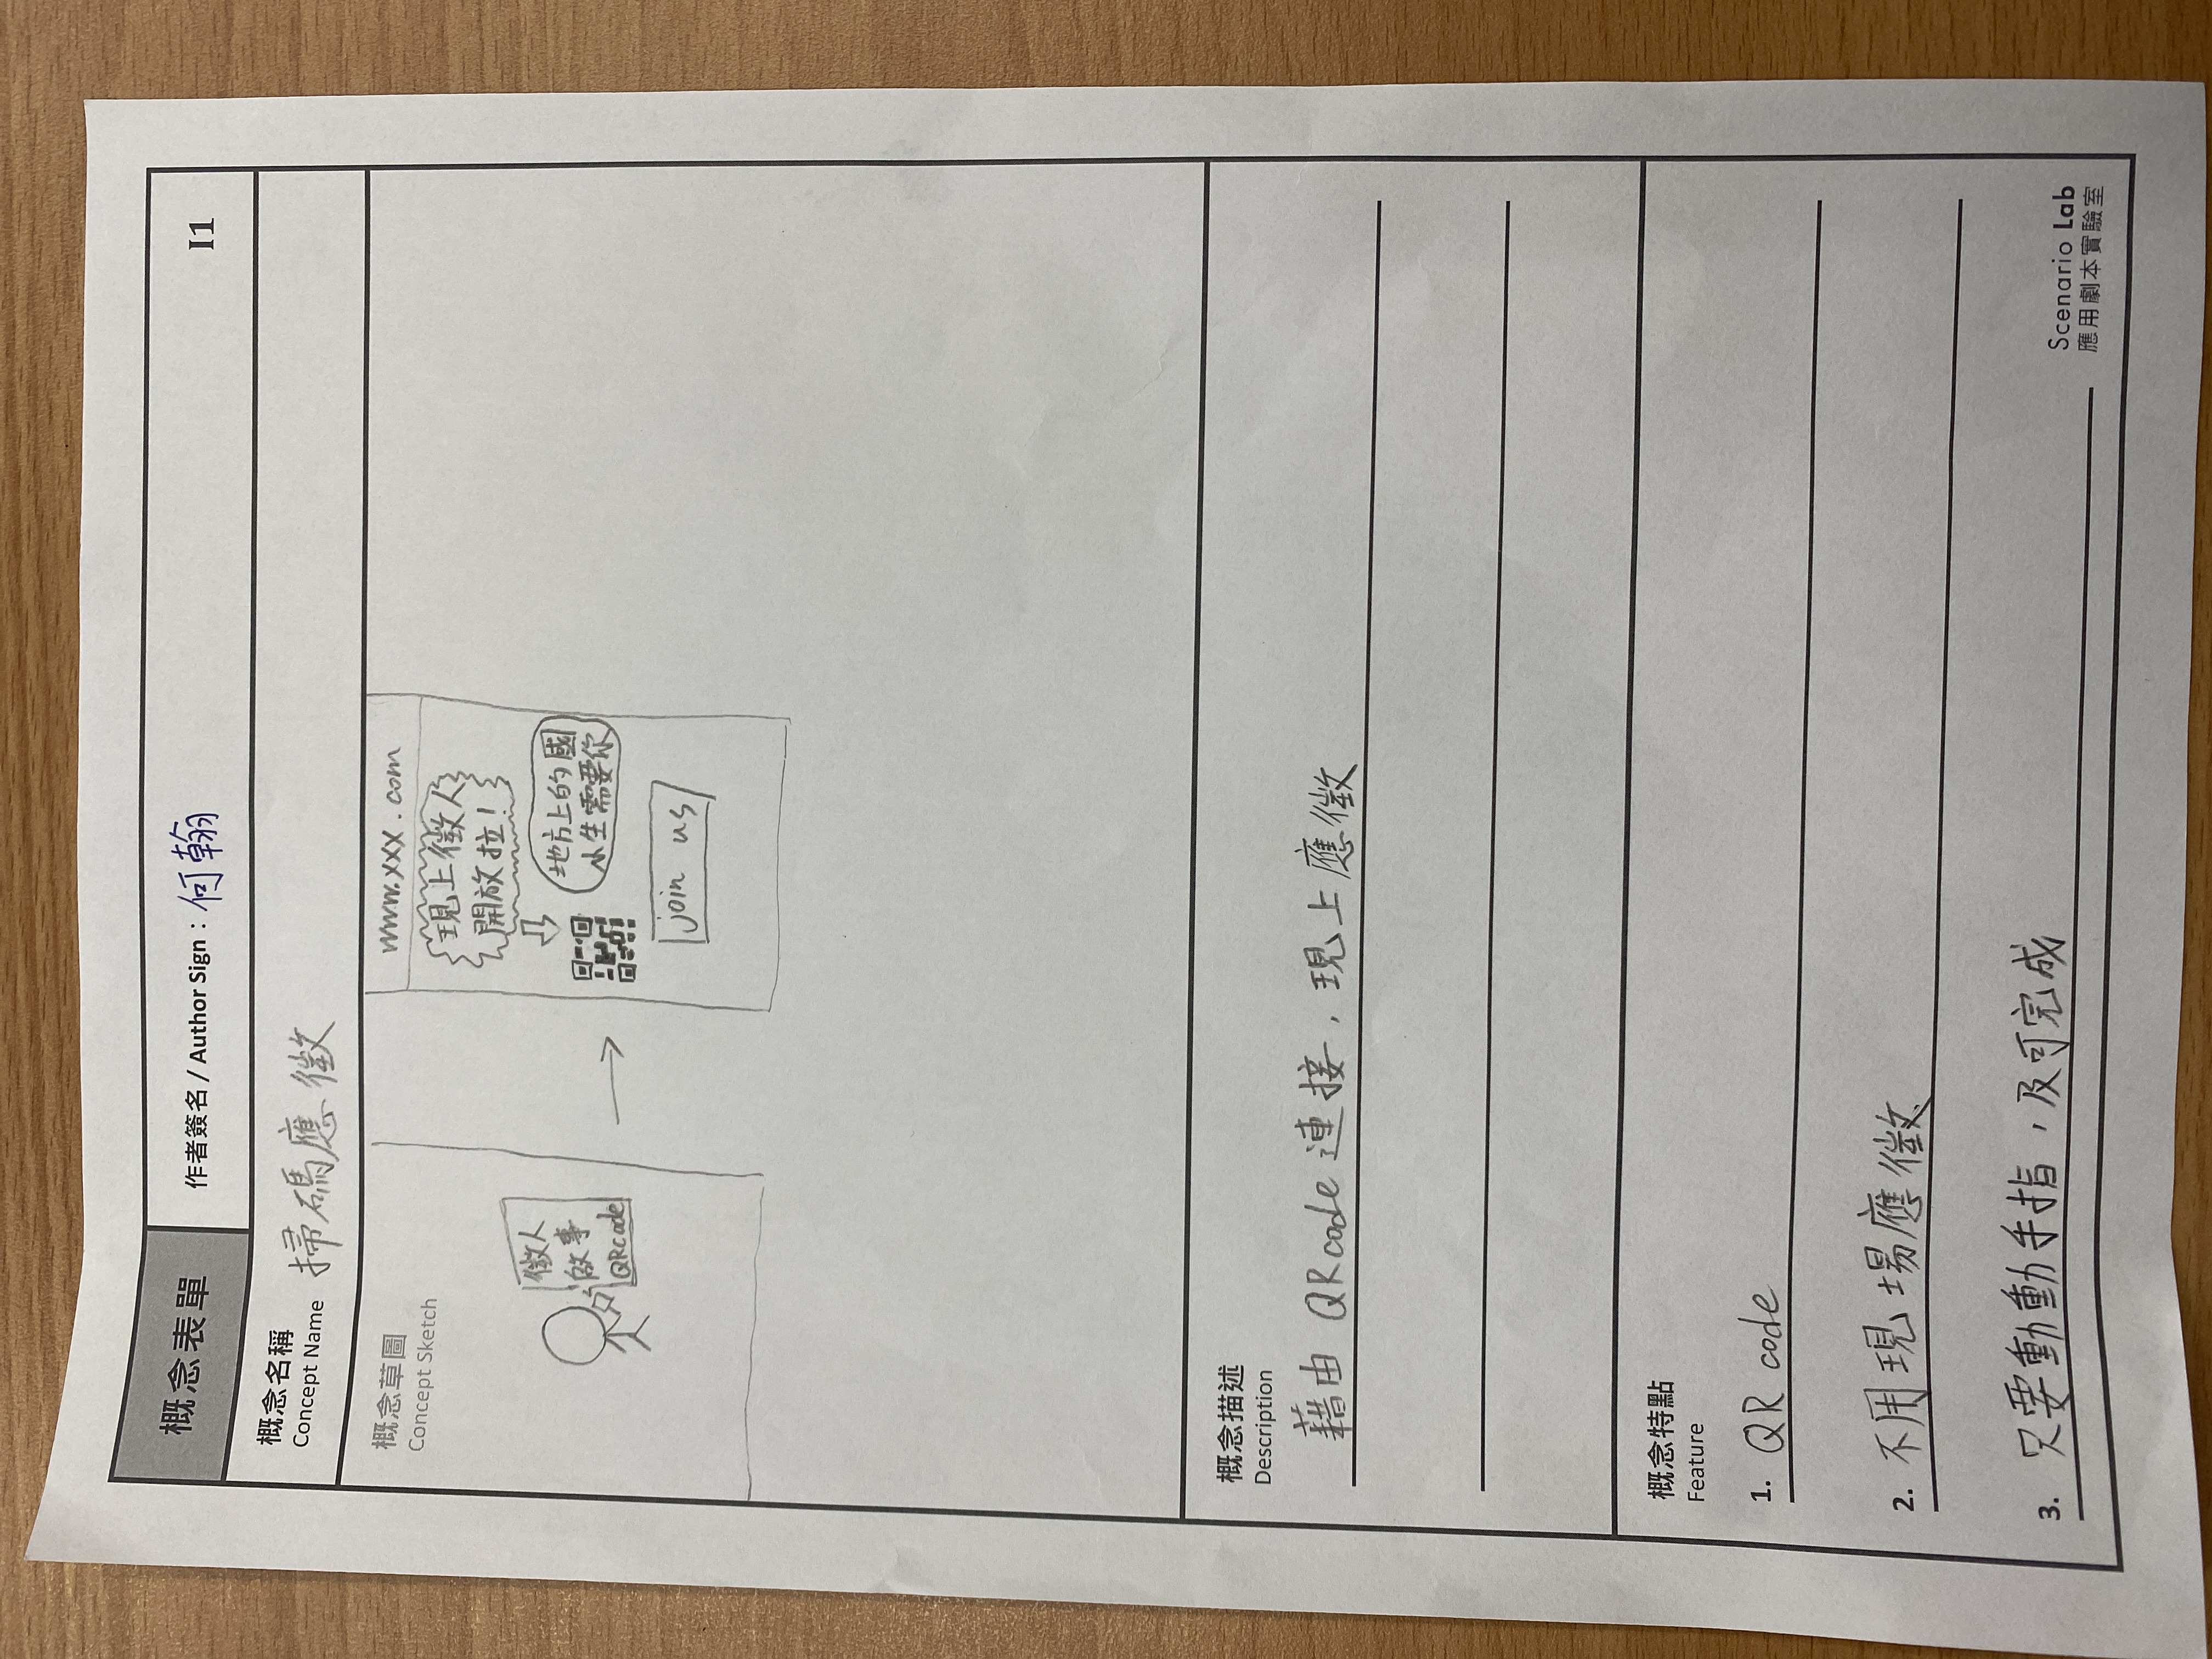 概念表單
作者簽名 / Author Sign：何翰
I1
概念名稱
Concept Name
掃碼應徵
概念草圖
Concept Sketch
徵人
啟事
QRcode
www.xxx.com
現上徵人
開放拉！
地方上的國
小生需要你
join us
概念描述
Description
藉由 QRcode 連接，現上應徵
概念特點
Feature
1. QR code
2. 不用現場應徵
3. 只要動動手指，及可完成
Scenario Lab
應用劇本實驗室